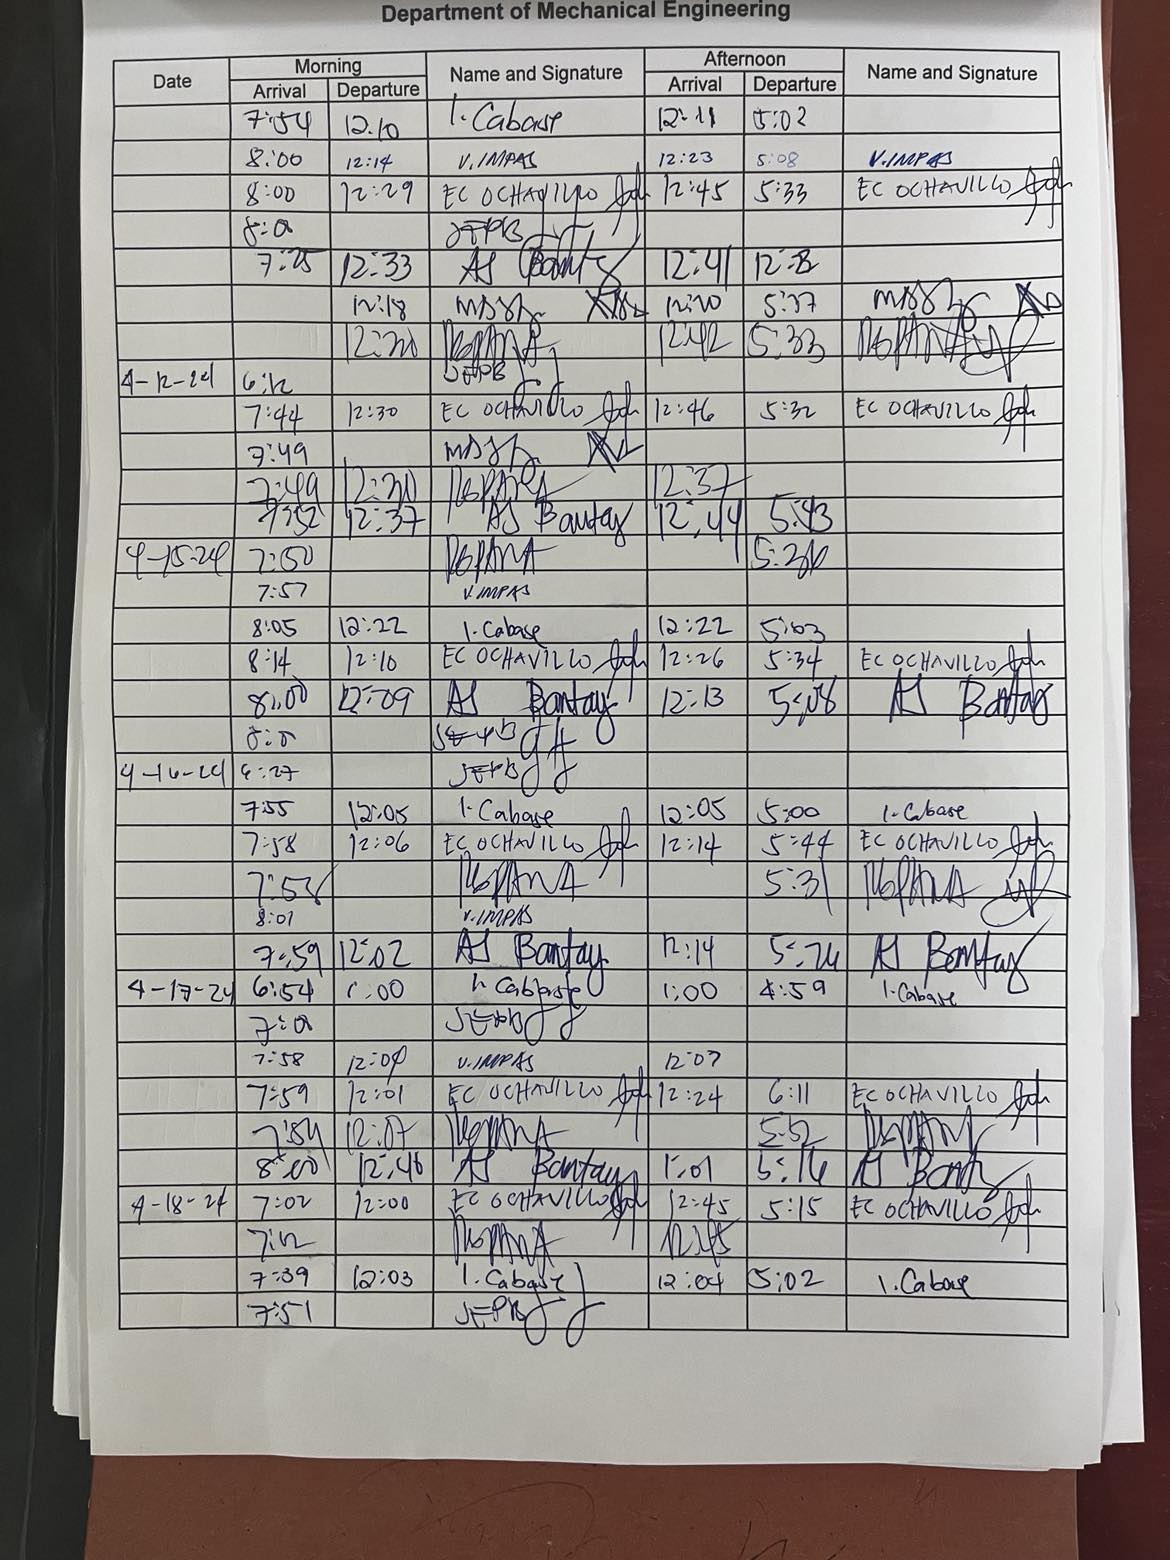 Department of Mechanical Engineering
Date Morning Name and Signature Afternoon Name and Signature
Arrival Departure Arrival Departure
7:54 12:10 1. Cabase 12:11 5:02
8:00 12:14 V. IMPAS 12:23 5:08 V. IMPAS
8:00 12:29 EC OCHAVILLO 12:45 5:33 EC OCHAVILLO
JEPB
7:25 12:33 AJ Bantay 12:41
12:18 5:37
12:42 5:33
4-12-24 6:12 JEPB
7:44 12:30 EC OCHAVILLO 12:46 5:32 EC OCHAVILLO
7:49
7:49 12:37
7:52 12:37 AJ Bantay 12:44 5:43
4-15-24 7:50
7:57 V. IMPAS
8:05 12:22 1. Cabase 12:22 5:03
8:14 12:10 EC OCHAVILLO 12:26 5:34 EC OCHAVILLO
8:00 12:09 AJ Bantay 12:13 5:08 AJ Bantay
JEPB
4-16-24 JEPB
7:55 12:05 1. Cabase 12:05 5:00 1. Cabase
7:58 12:06 EC OCHAVILLO 12:14 5:44 EC OCHAVILLO
5:31
8:01 V. IMPAS
7:59 12:02 AJ Bantay 12:14 AJ Bantay
4-17-24 6:54 1:00 1. Cabase 1:00 4:59 1. Cabase
JEPB
7:58 V. IMPAS 12:07
7:59 12:01 EC OCHAVILLO 12:24 6:11 EC OCHAVILLO
12:07 5:52
8:00 12:46 AJ Bantay 1:01 5:16 AJ Bantay
4-18-24 7:02 12:00 EC OCHAVILLO 12:45 5:15 EC OCHAVILLO
7:12 12:45
7:39 12:03 1. Cabase 12:04 5:02 1. Cabase
7:51 JEPB